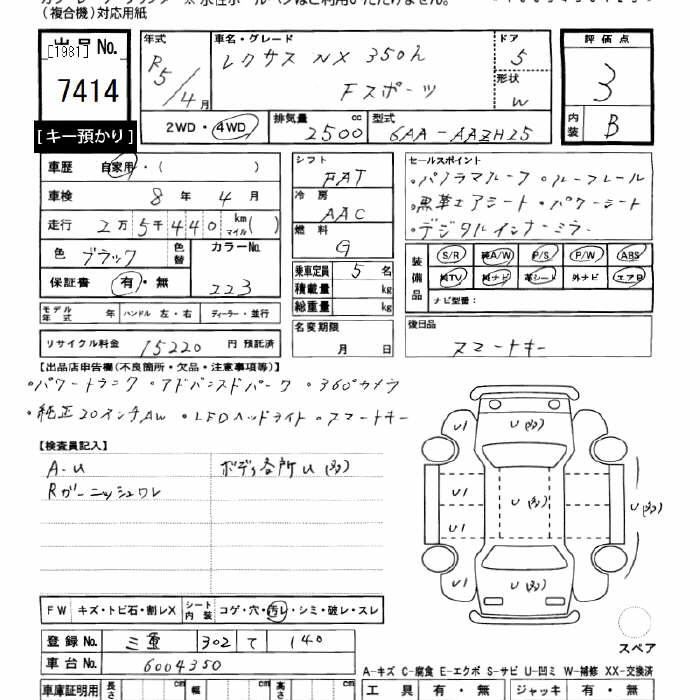 (複合機)対応用紙
出品 No. [1981] 7414
[キー預かり]
年式 R5/4月
車名・グレード レクサス NX 350h
Fスポーツ
ドア 5
形状 W
評価点 3
内装 B
2WD・4WD 排気量 2500 cc 型式 6AA-AAZH25
車歴 自家用・( )
車検 8年 4月
走行 2万5千440 km マイル( )
色 ブラック 色替 カラーNo. 223
保証書 有・無
モデル年式 年 ハンドル 左・右 ディーラー・並行
リサイクル料金 15220 円 預託済
シフト FAT
冷房 AAC
燃料 G
乗車定員 5 名
積載量 kg
総重量 kg
名変期限 月 日
セールスポイント
・パノラマルーフ ・ルーフレール
・黒革エアシート ・パワーシート
・デジタルインナーミラー
装備品 S/R 純A/W P/S P/W ABS
純TV 純ナビ 革シート 外ナビ エアB
ナビ型番:
後日品
スマートキー
【出品店申告欄(不良箇所・欠品・注意事項等)】
・パワートランク ・アドバンスドパーク ・360°カメラ
・純正20インチAW ・LEDヘッドライト ・スマートキー
【検査員記入】
A-U ボディ各所U(多)
Rガーニッシュワレ
U1 U(多)
U1
U1 U(多) U(多)
U1
U1 U(多)
FW キズ・トビ石・割レX シート内装 コゲ・穴・汚レ・シミ・破レ・スレ
登録No. 三重 302 て 140
車台No. 6004350
スペア
A-キズ C-腐食 E-エクボ S-サビ U-凹ミ W-補修 XX-交換済
車庫証明用 長さ cm 幅 cm 高さ cm
工具 有・無 ジャッキ 有・無